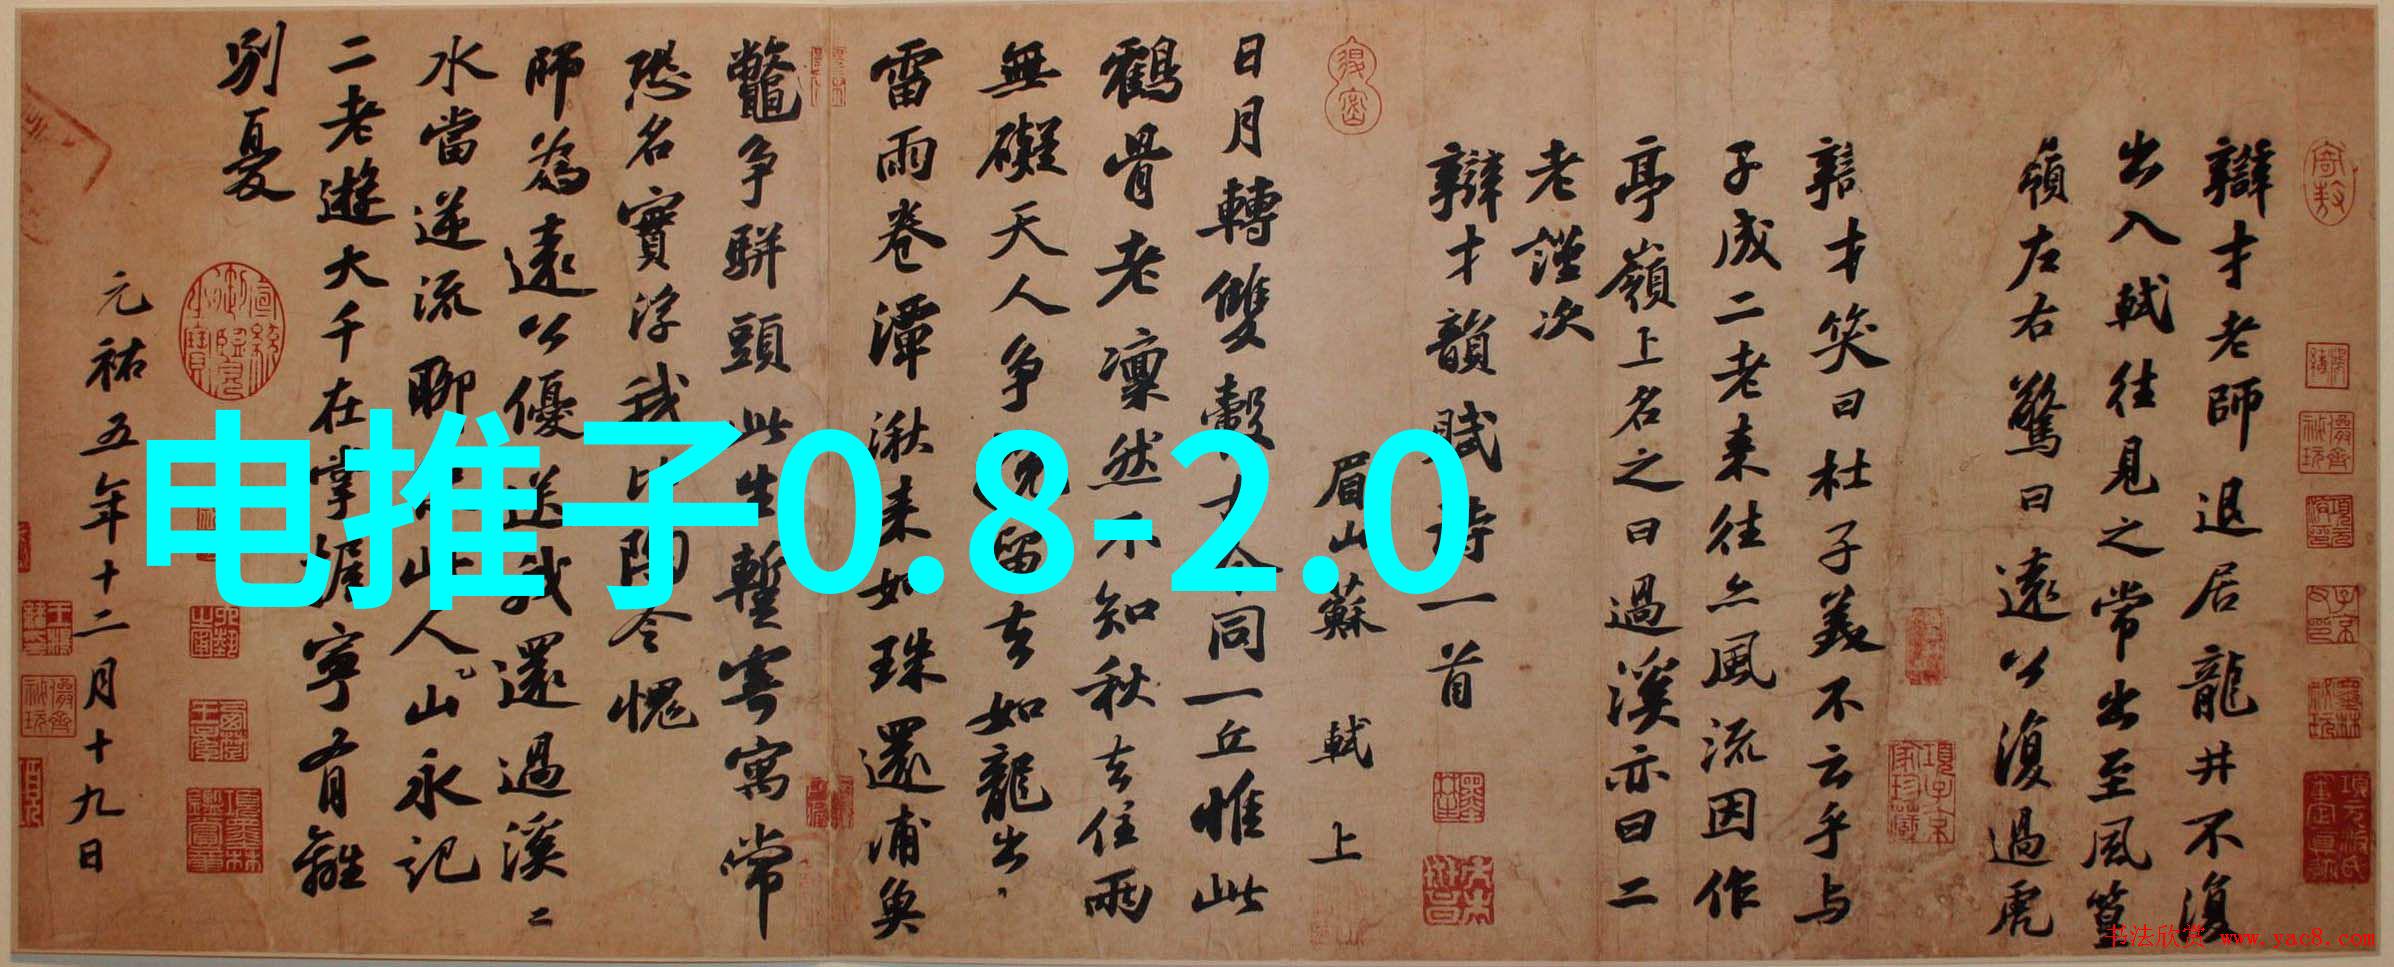 辯才老師退居龍井不復
出入軾往見之常出至風篁
嶺左右驚曰遠公復過虎
辯才笑曰杜子美不云乎与
子成二老来往亦風流因作
亭嶺上名之曰過溪亦曰二
老謹次
辯才韻賦詩一首
眉山蘇軾上
日月轉雙轂今同一丘惟此
鶴骨老凛然不知秋去住兩
無礙天人争留去如龍出
雷雨卷潭湫来如珠還浦魚
鼈争駢頭此生暫寄寓常
恐名實浮我比陶令愧
師為遠公優送我還過溪二
水當逆流聊此人山永記
二老遊大千在掌握寧有離
別憂
元祐五年十二月十九日
电推子0.8-2.0
书法欣赏 www.yac8.com